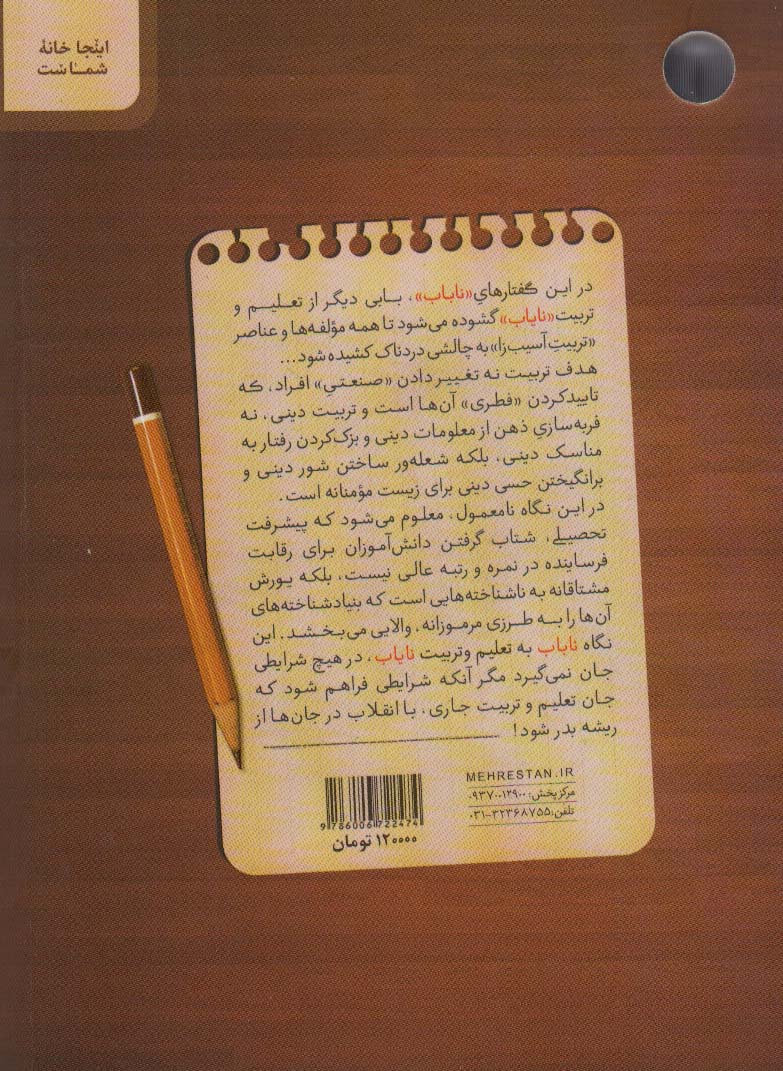 اینجا خانهٔ
شماست
در این گفتارهایِ «نایاب»، بابی دیگر از تعلیم و
تربیت «نایاب» گشوده می‌شود تا همه مؤلفه‌ها و عناصر
«تربیتِ آسیب‌زا» به چالشی دردناک کشیده شود...
هدف تربیت نه تغییر دادن «صنعتیِ» افراد، که
تاییدکردن «فطری» آن‌ها است و تربیت دینی، نه
فربه‌سازیِ ذهن از معلومات دینی و بزک‌کردن رفتار به
مناسک دینی، بلکه شعله‌ور ساختن شور دینی و
برانگیختن حسی دینی برای زیست مؤمنانه است.
در این نگاه نامعمول، معلوم می‌شود که پیشرفت
تحصیلی، شتاب گرفتن دانش‌آموزان برای رقابت
فرساینده در نمره و رتبه عالی نیست، بلکه یورش
مشتاقانه به ناشناخته‌هایی است که بنیادشناخته‌های
آن‌ها را به طرزی مرموزانه، والایی می‌بخشد. این
نگاه نایاب به تعلیم وتربیت نایاب، در هیچ شرایطی
جان نمی‌گیرد مگر آنکه شرایطی فراهم شود که
جان تعلیم و تربیت جاری، با انقلاب در جان‌ها از
ریشه بدر شود!
MEHRESTAN.IR
مرکزپخش: ۰۹۳۷۰۰۱۲۹۰۰
تلفن: ۰۳۱-۳۲۳۶۸۷۵۵
9786006722474
۱۲۰۰۰۰ تومان